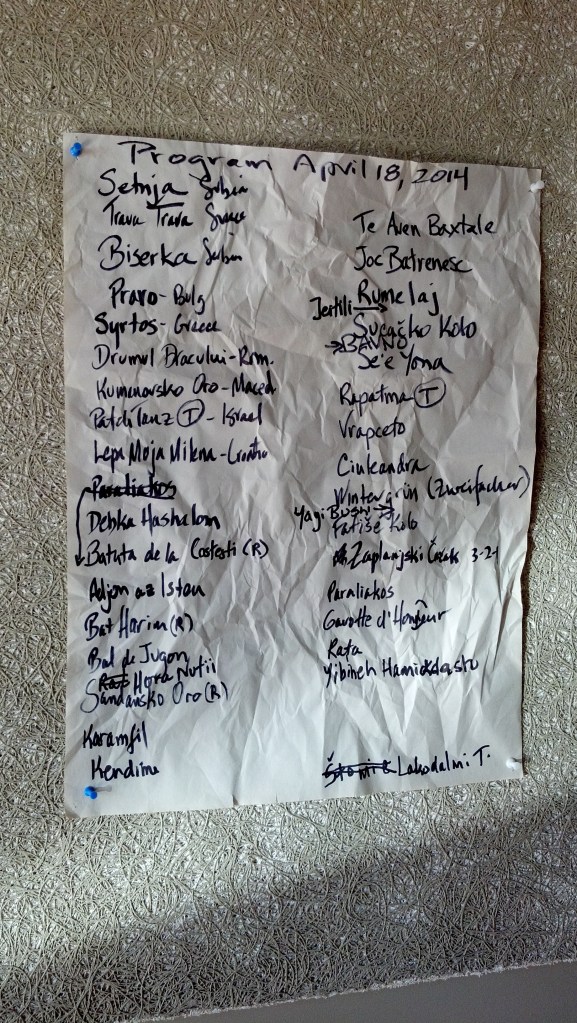 Program April 18, 2014
Setnja Serbia
Trava Trava Greece
Biserka Serbia
Pravo - Bulg
Syrtos - Greece
Drumul Dracului - Rom.
Kumanovsko Oro - Maced
Patch Tanz (T) - Israel
Lepa Moja Milena - Croatia
Paraliakos
Debka Hashalom
Batuta de la Costesti (R)
Adjon az Isten
Bat Harim (R)
Bal de Jugon
Hora Nutii
Sandansko Oro (R)
Karamfil
Kendime
Te Aven Baxtale
Joc Batrenesc
Jeftili → Rumelaj
Sucačko Kolo
→ BAVNO
Se'e Yona
Rapatma (T)
Vrapceto
Ciuleandra
Wintergrün (Zweifacher)
Yagi Bushi →
Fatiše Kolo
Zaplanjski Čačak 3-2-1
Paraliakos
Gavotte d'Honneur
Rata
Yibineh Hamickdash
Lakodalmi T.